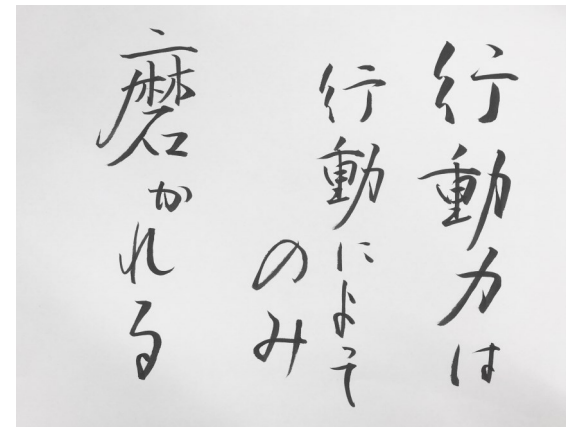 行動力は
行動によって
のみ
磨かれる